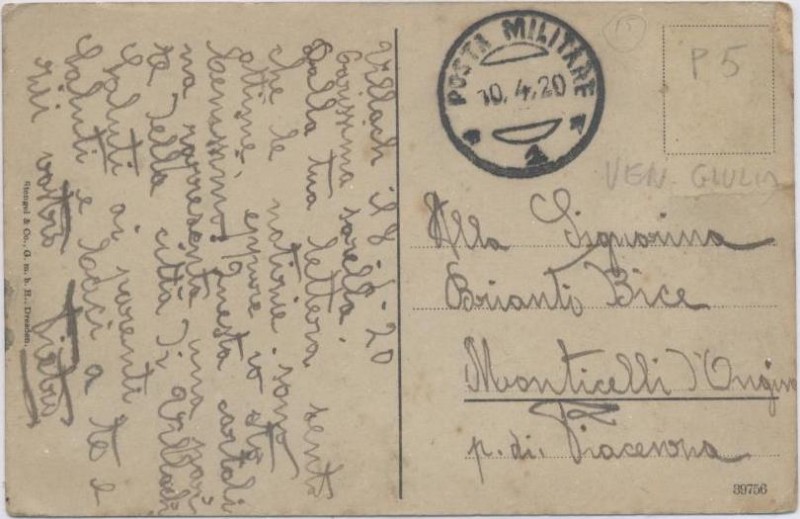 Villach il 8-4-20
Carissima sorella,
Dalla tua lettera sento
che le notizie sono
ottime, eppure io sto
benissimo. Questa cartoli
na rappresenta una par
te della città di Villach
Saluti ai parenti
Saluti e baci a te e
rii vostro
Stengel & Co., G. m. b. H., Dresden.
POSTA MILITARE
10.4.20
15
P 5
VEN. GIULIA
Alla Signorina
Brianti Bice
Monticelli d'Ongina
p. di. Piacenza
39756